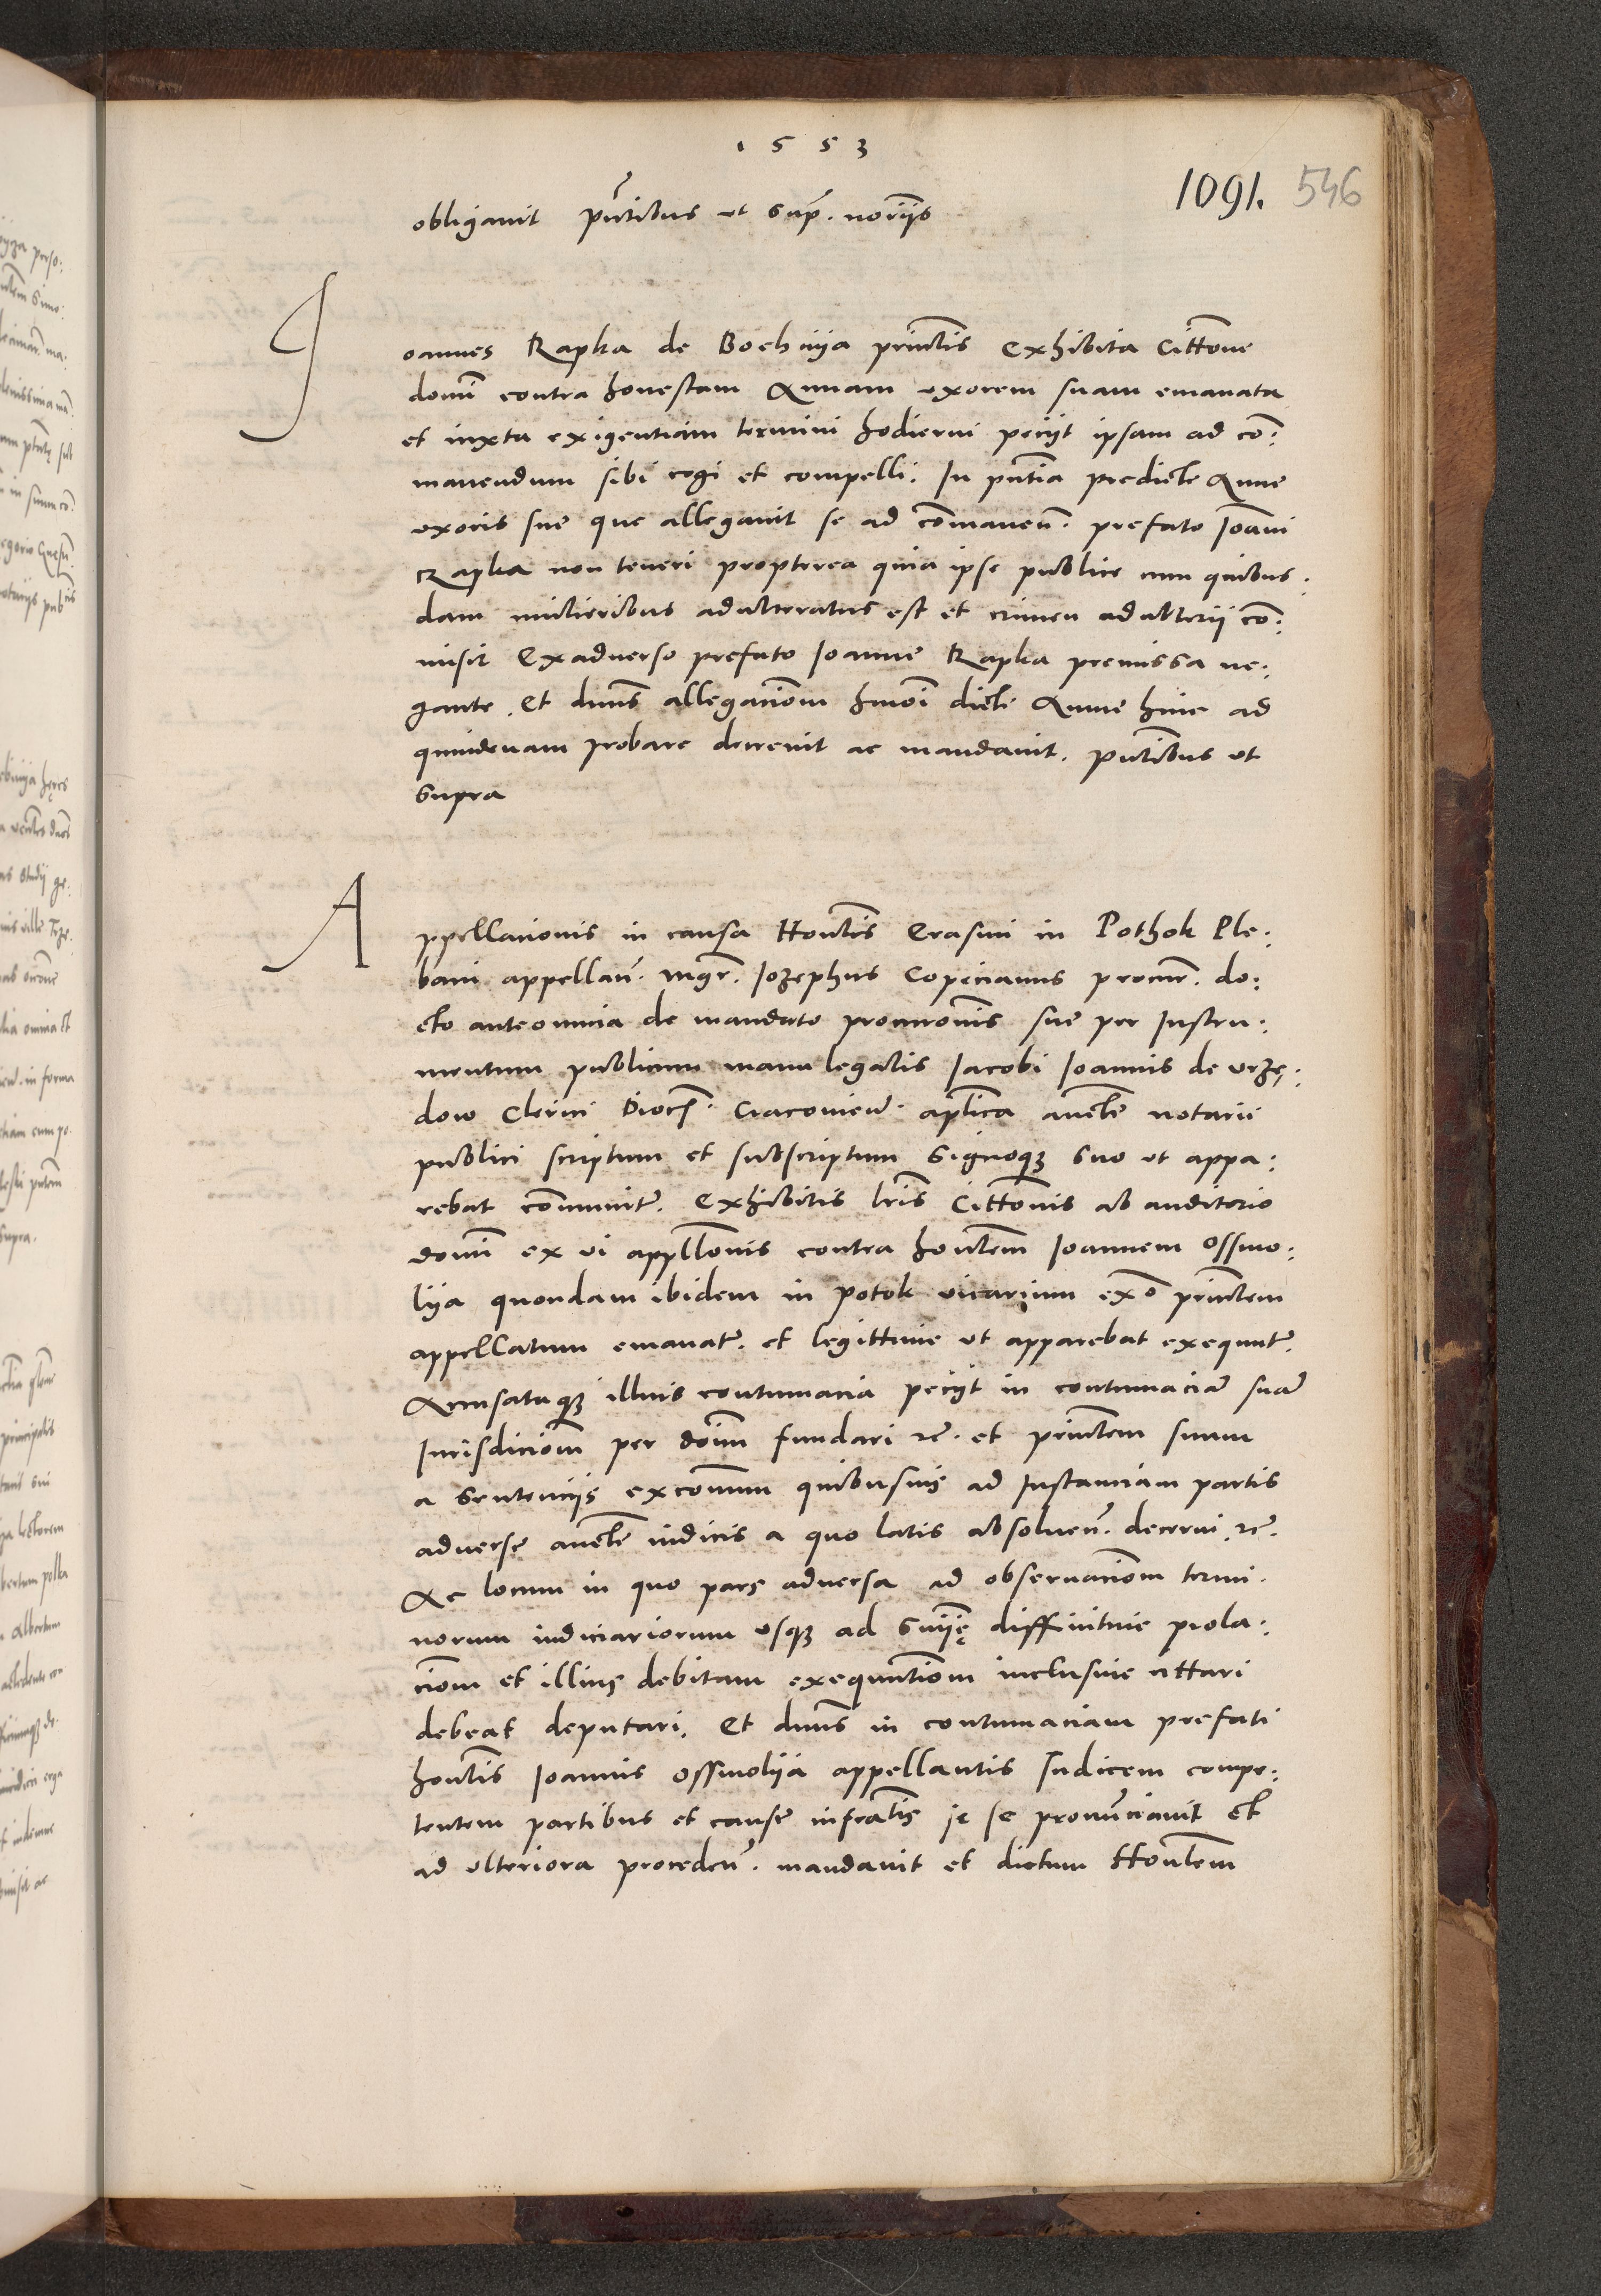 1553
1091. 546
obligavit pñtibus ut sup. notriis
Joannes Rapka de Bochnija princtis Exhibita Cittone
domi contra honestam Annam uxorem suam emanata
et iuxta exigentiam termini hodierni peciit ipsam ad co:
manendum sibi cogi et compelli. In pñtia predicte Anne
uxoris sue que allegavit se ad comaneñ. prefato Joani
Rapka non teneri propterea quia ipse publice cum quibus:
dam mulieribus adulteratus est et crimen adulterii co:
misit Exadverso prefato Joanne Rapka premissa ne:
gante. Et dnus allegaciom hmoi dicte Anne hinc ad
quindenam probare decrevit ac mandavit. pñtibus ut
supra
Appellacionis in causa Honlis Erasmi in Pothok Ple:
bani appellañ. mgr. Jozephus Copecianus procur. do:
cto anteomnia de mandato procurois sue per Instru:
mentum publicum manu legalis Jacobi Joannis de Urzę:
dow Clerici Dioces. Cracovien. aplica aucte notarii
publici scriptum et subscriptum signoq3 suo ut appa:
rebat comunit. Exhibitis lris Cittonis ab auditorio
domi ex vi appllonis contra honlem Joannem Ossmo:
lija quondam ibidem in potok vicarium exº princtem
appellatum emanat. et legittime ut apparebat exequut.
Accusataq3 illius contumacia peciit in contumacia sua
Jurisdiciom per doim fundari rc. et princtem suum
a sentenciis excomum quibusuis ad Instanciam partis
adverse aucte iudicis a quo latis absolven. decerni rc.
Ac locum in quo pars adversa ad observaciom termi.
norum iudiciariorum usq3 ad sniję diffinitive prola:
ciom et illius debitam exequutiom inclusive cittari
debeat deputari. Et dnus in contumaciam prefati
honlis Joannis Ossmolija appellantis Judicem compe:
tentem partibus et cause infratis je se pronunciavit Et
ad ulteriora proceden. mandavit et dictum Honlem